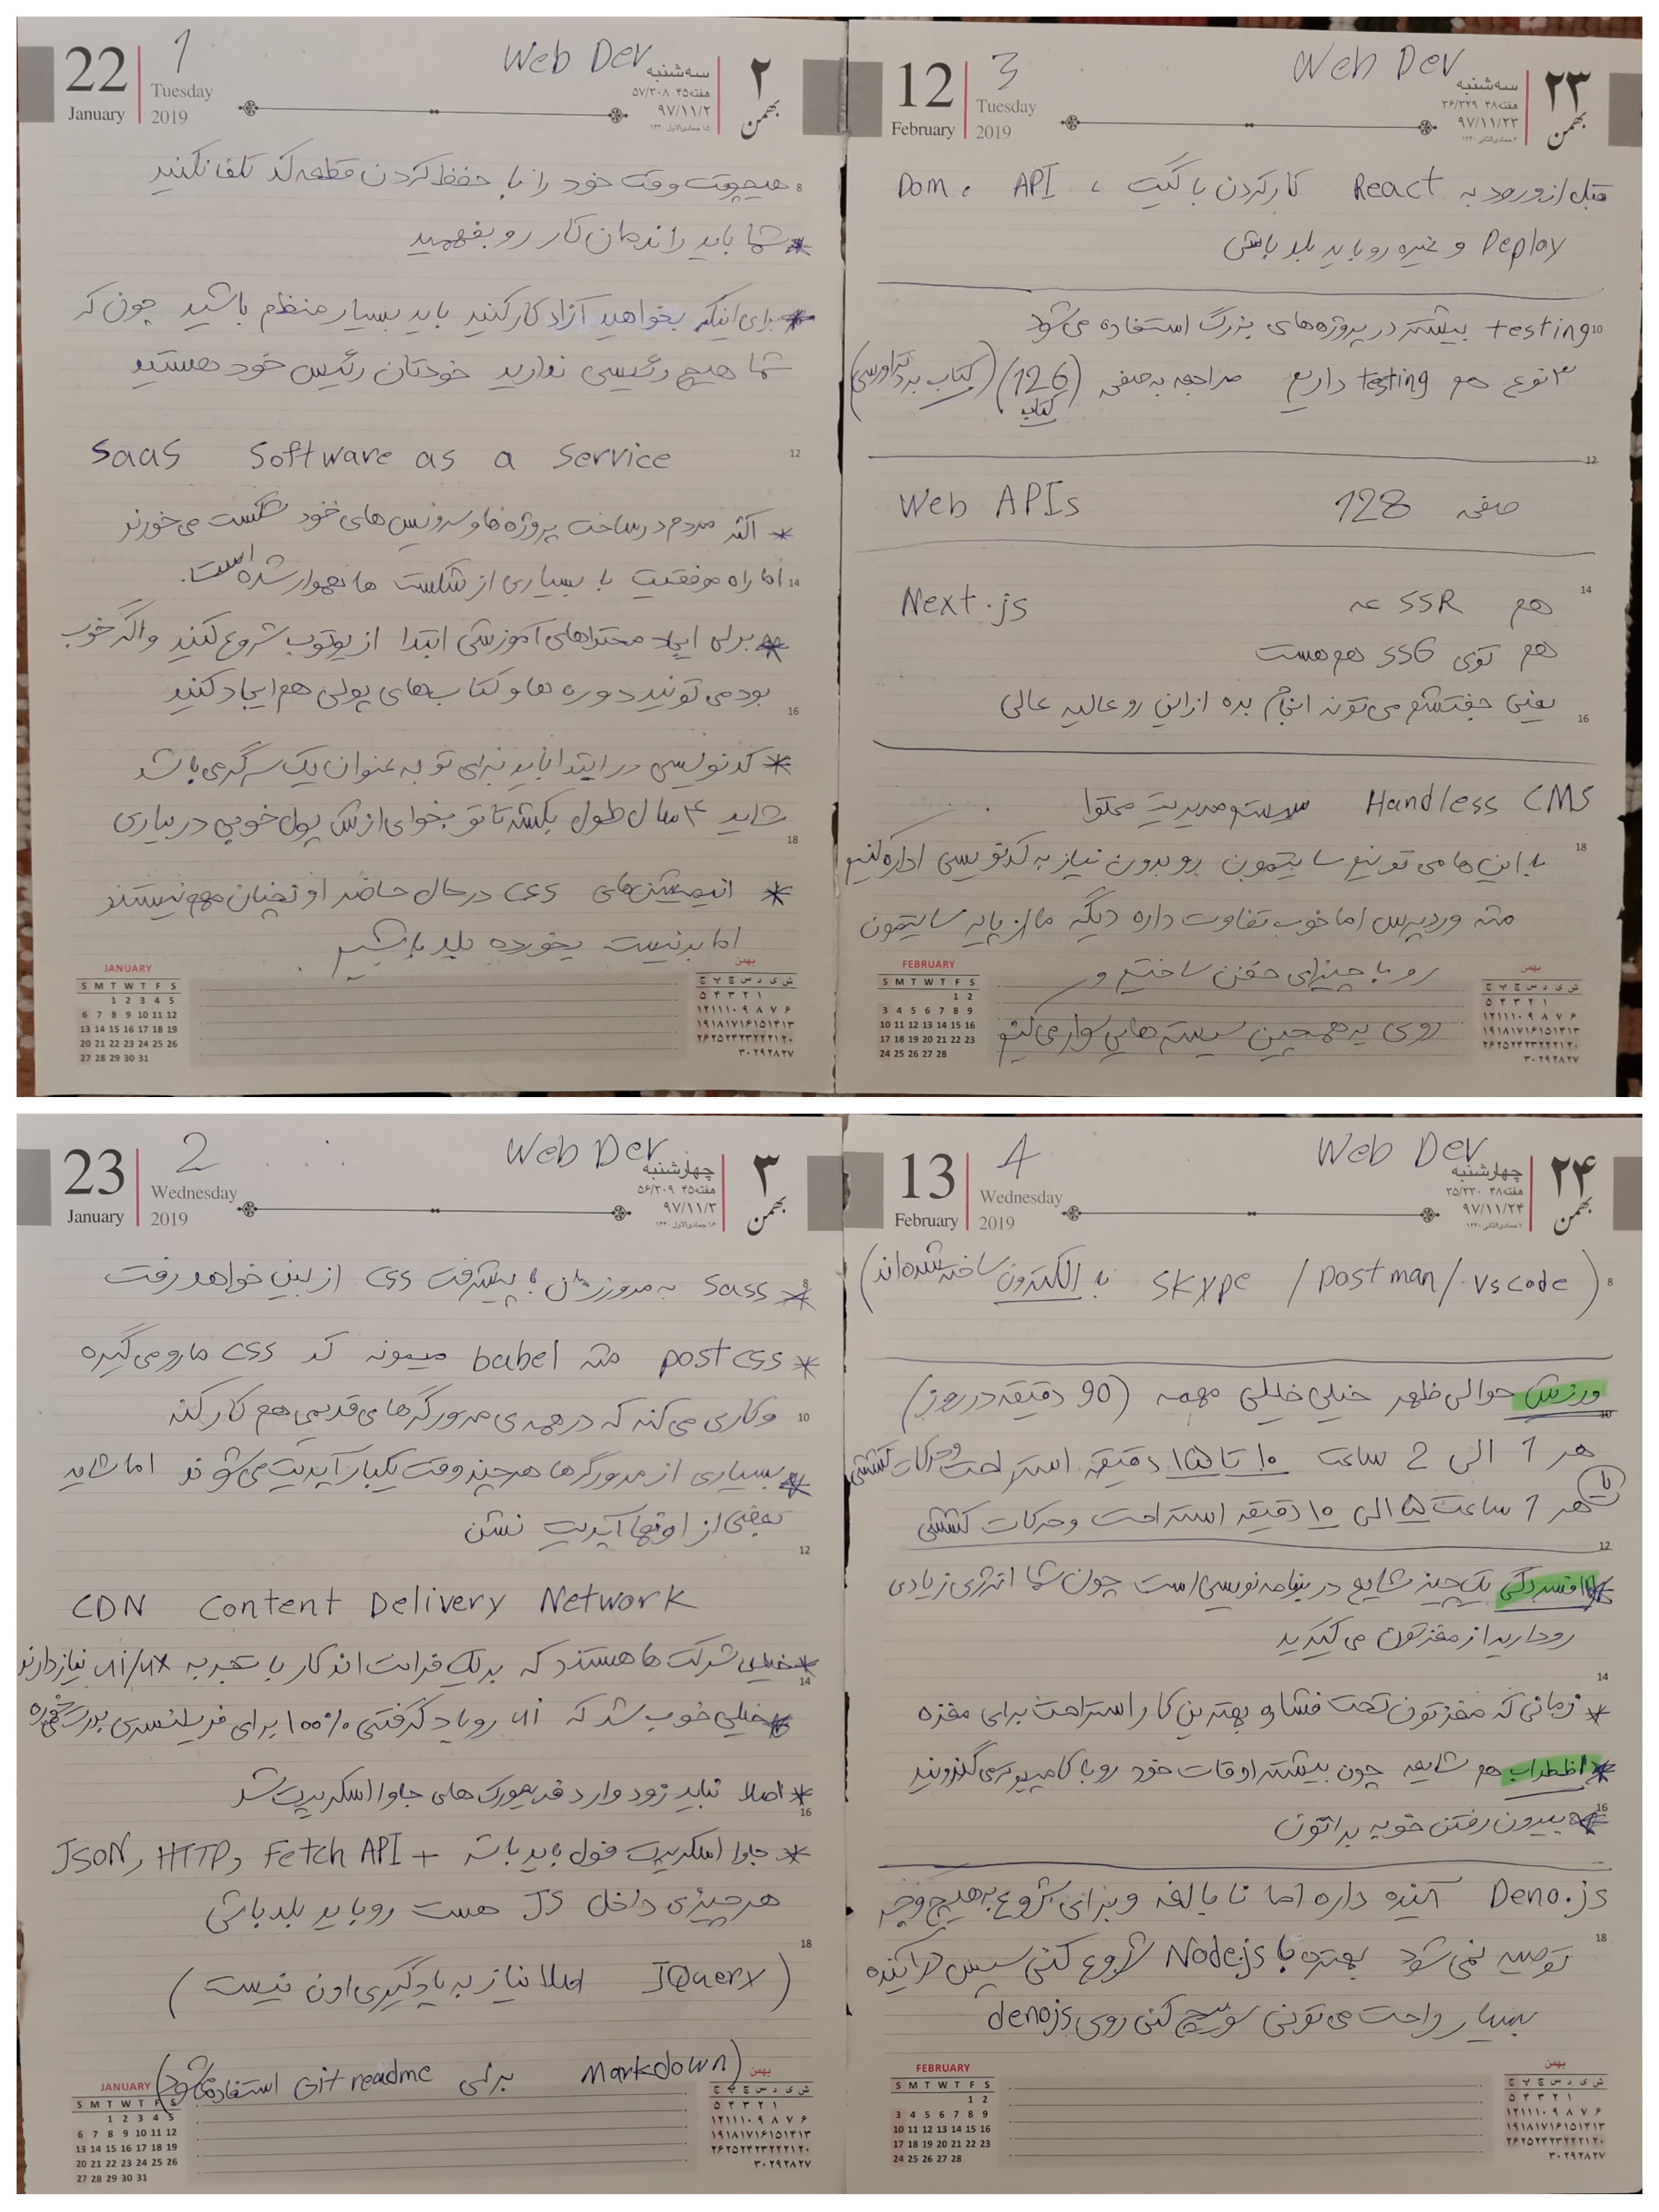 22
January
1
Tuesday
2019
Web Dev
سه‌شنبه
هفته ۴۵ ۵۷/۳۰۸
۹۷/۱۱/۲
۲
بهمن
هیچوقت وقت خود را با حفظ کردن قطعه کد تلف نکنید
* شما باید راندمان کار رو بفهمید
* برای اینکه بخواهید آزاد کار کنید باید بسیار منظم باشید چون که
شما هیچ رئیسی ندارید خودتان رئیس خود هستید
SaaS Software as a Service
* اکثر مردم در ساخت پروژه ها و سرویس های خود شکست می خورند
اما راه موفقیت با بسیاری از شکست ها هموار شده است.
* برای ایجاد محتواهای آموزشی ابتدا از یوتوب شروع کنید و اگر خوب
بود می تونید دوره ها و کتاب های پولی هم ایجاد کنید
* کدنویسی در ابتدا باید برای تو به عنوان یک سرگرمی باشد
شاید ۴ سال طول بکشه تا تو بخوای ازش پول خوبی در بیاری
* انیمیشن های css درحال حاضر اونچنان مهم نیستند
اما بد نیست یخورده بلد باشیم.
JANUARY
S M T W T F S
1 2 3 4 5
6 7 8 9 10 11 12
13 14 15 16 17 18 19
20 21 22 23 24 25 26
27 28 29 30 31
بهمن
ش ی د س چ پ ج
۱ ۲ ۳ ۴ ۵
۶ ۷ ۸ ۹ ۱۰ ۱۱ ۱۲
۱۳ ۱۴ ۱۵ ۱۶ ۱۷ ۱۸ ۱۹
۲۰ ۲۱ ۲۲ ۲۳ ۲۴ ۲۵ ۲۶
۲۷ ۲۸ ۲۹ ۳۰
12
February
3
Tuesday
2019
Web Dev
سه‌شنبه
هفته ۴۸ ۳۶/۳۲۹
۹۷/۱۱/۲۳
۲۳
بهمن
قبل از ورود به React کار کردن با گیت ، API ، Dom
Deploy و غیره رو باید بلد باشی
testing بیشتر در پروژه های بزرگ استفاده می شود
۳ نوع هم testing داریم مراجعه به صفحه (126) (کتاب
کتاب
Web APIs صفحه 128
Next.js هم SSR عه
هم توی SSG هم هست
یعنی جفتشم می تونه انجام بده از این رو عالیه عالی
Handless CMS سیستم مدیریت محتوا
با این ها می تونیم سایتمون رو بدون نیاز به کدنویسی اداره کنیم
مثه وردپرس اما خوب تفاوت داره دیگه ما از پایه سایتمون
رو با چیزای خفن ساختیم و
روی یه همچین سیستم هایی سوار می کنیم
FEBRUARY
S M T W T F S
1 2
3 4 5 6 7 8 9
10 11 12 13 14 15 16
17 18 19 20 21 22 23
24 25 26 27 28
بهمن
ش ی د س چ پ ج
۱ ۲ ۳ ۴ ۵
۶ ۷ ۸ ۹ ۱۰ ۱۱ ۱۲
۱۳ ۱۴ ۱۵ ۱۶ ۱۷ ۱۸ ۱۹
۲۰ ۲۱ ۲۲ ۲۳ ۲۴ ۲۵ ۲۶
۲۷ ۲۸ ۲۹ ۳۰
23
January
2
Wednesday
2019
Web Dev
چهارشنبه
هفته ۴۵ ۵۶/۳۰۹
۹۷/۱۱/۳
۳
بهمن
* sass به مرور زمان با پیشرفت css از بین خواهد رفت
* post css مثه babel میمونه کد css مارو می گیره
و کاری می کنه که در همه ی مرورگرهای قدیمی هم کار کنه
* بسیاری از مرورگرها هر چند وقت یکبار آپدیت می شوند اما شاید
بعضی از اونها آپدیت نشن
CDN Content Delivery Network
* خیلی شرکت ها هستند که به یک فرانت اند کار با تجربه ui/ux نیاز دارند
* خیلی خوب شد که ui رو یاد گرفتی 100% برای فریلنسری بدردت میخوره
* اصلا نباید زود وارد فریمورک های جاوا اسکریپت شد
* جاوا اسکریپت فول باید باشه + JSON, HTTP, Fetch API
هرچیزی داخل JS هست رو باید بلد باشی
(JQuery اصلا نیاز به یادگیری اون نیست)
(Markdown برای Git readme استفاده میشود)
JANUARY
S M T W T F S
1 2 3 4 5
6 7 8 9 10 11 12
13 14 15 16 17 18 19
20 21 22 23 24 25 26
27 28 29 30 31
بهمن
ش ی د س چ پ ج
۱ ۲ ۳ ۴ ۵
۶ ۷ ۸ ۹ ۱۰ ۱۱ ۱۲
۱۳ ۱۴ ۱۵ ۱۶ ۱۷ ۱۸ ۱۹
۲۰ ۲۱ ۲۲ ۲۳ ۲۴ ۲۵ ۲۶
۲۷ ۲۸ ۲۹ ۳۰
13
February
4
Wednesday
2019
Web Dev
چهارشنبه
هفته ۴۸ ۳۵/۳۳۰
۹۷/۱۱/۲۴
۲۴
بهمن
(skype / postman / vscode با الکترون ساخته شده اند)
ورزش حوالی ظهر خیلی خیلی مهمه (90 دقیقه در روز)
هر 1 الی 2 ساعت ۱۰ تا ۱۵ دقیقه استراحت و حرکات کششی
یا
هر 1 ساعت ۵ الی ۱۰ دقیقه استراحت و حرکات کششی
* افسردگی یک چیز شایع در برنامه نویسی است چون شما انرژی زیادی
رو دارید از مغزتون می گیرید
* زمانی که مغزتون تحت فشاره بهترین کار استراحت برای مغزه
* اظطراب هم شایعه چون بیشتر اوقات خود رو با کامپیوتر می گذرونید
* بیرون رفتن خوبه براتون
Deno.js آینده داره اما نابالغه و برای شروع به هیچ وجه
توصیه نمی شود بهتره با Node.js شروع کنی سپس در آینده
بسیار راحت می تونی سوییچ کنی روی denojs
FEBRUARY
S M T W T F S
1 2
3 4 5 6 7 8 9
10 11 12 13 14 15 16
17 18 19 20 21 22 23
24 25 26 27 28
بهمن
ش ی د س چ پ ج
۱ ۲ ۳ ۴ ۵
۶ ۷ ۸ ۹ ۱۰ ۱۱ ۱۲
۱۳ ۱۴ ۱۵ ۱۶ ۱۷ ۱۸ ۱۹
۲۰ ۲۱ ۲۲ ۲۳ ۲۴ ۲۵ ۲۶
۲۷ ۲۸ ۲۹ ۳۰